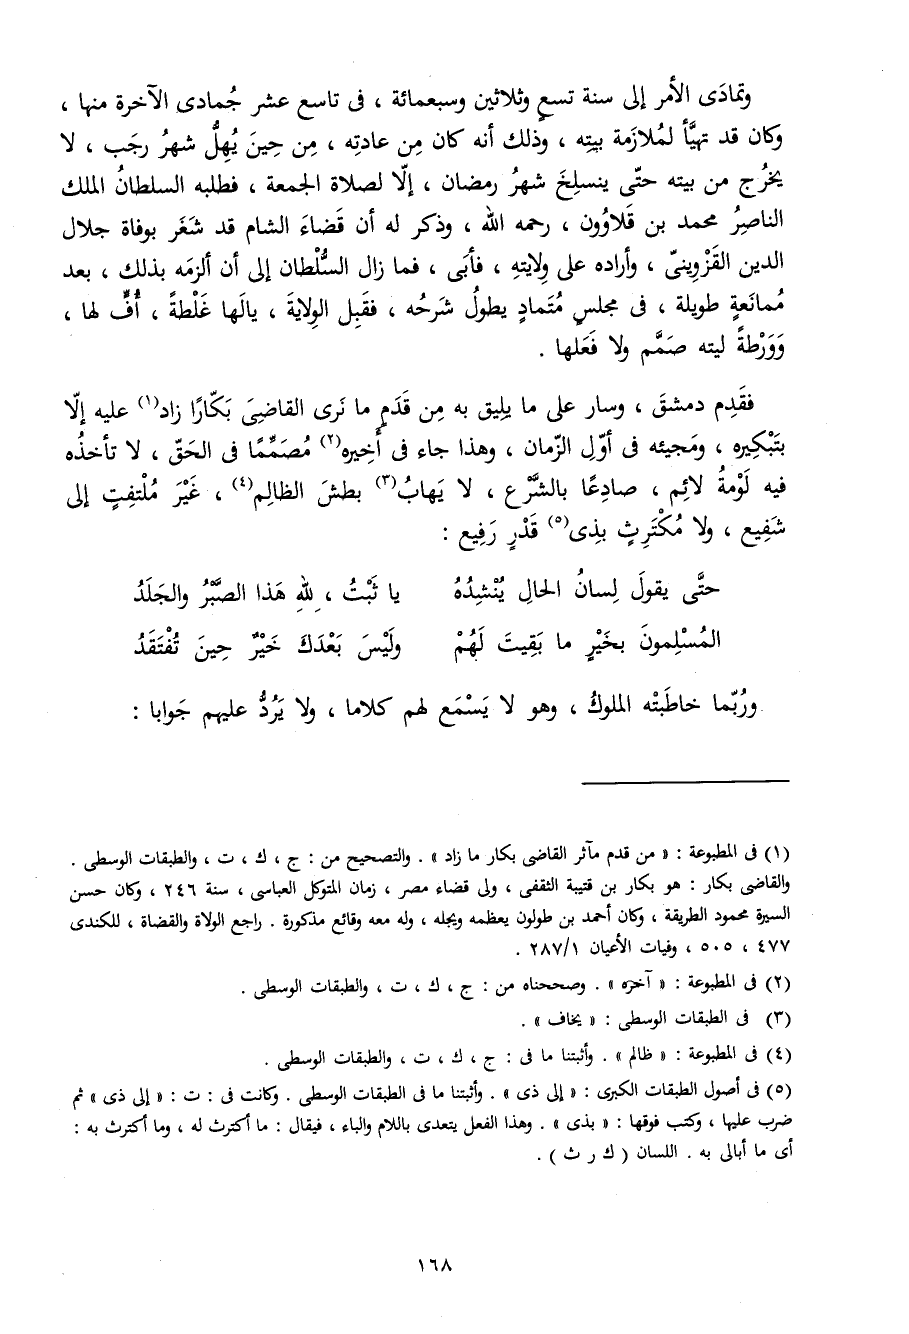 وتمادَى الأمر إلى سنة تسعٍ وثلاثين وسبعمائة ، فى تاسع عشر جُمادى الآخرة منها ،
وكان قد تهيَّأ لمُلازمة بيتِه ، وذلك أنه كان مِن عادتِه ، مِن حِينَ يُهِلُّ شهرُ رجَب ، لا
يخرُج من بيته حتّى ينسلِخَ شهرُ رمضان ، إلّا لصلاة الجمعة ، فطلبه السلطانُ الملك
الناصِرُ محمد بن قَلاوُون ، رحمه الله ، وذكر له أن قَضاءَ الشام قد شغَر بوفاة جلال
الدين القَزْوِينىّ ، وأراده على وِلايتهِ ، فأبَى ، فما زال السُّلْطان إلى أن ألزمَه بذلك ، بعد
مُمانَعةٍ طويلة ، فى مجلسٍ مُتَمادٍ يطولُ شرحُه ، فقَبِل الوِلايةَ ، يالَها غَلْطةً ، أُفٍّ لها ،
وَوَرْطةً ليته صَمَّم ولا فَعَلها .
فقَدِم دمشقَ ، وسار على ما يلِيق به مِن قَدَمٍ ما نَرى القاضِىَ بَكّارًا زاد(١) عليه إلّا
بتَبْكيره ، ومَجيئه فى أوّلِ الزّمان ، وهذا جاء فى أَخِيره(٢) مُصَمِّمًا فى الحَقّ ، لا تأخذُه
فيه لَوْمةُ لائِم ، صادِعًا بالشَّرْع ، لا يَهابُ(٣) بطشَ الظالِم(٤) ، غَيْرَ مُلْتفِتٍ إلى
شَفِيع ، ولا مُكْتَرِثٍ بذِى(٥) قَدْرٍ رَفِيع :
حتَّى يقولَ لِسانُ الحالِ يُنْشِدُهُ يا ثَبْتُ ، لِلهِ هَذا الصَّبْرُ والجَلَدُ
المُسْلِمونَ بخَيْرٍ ما بَقِيتَ لَهُمْ ولَيْسَ بَعْدَكَ خَيْرٌ حِينَ تُفْتَقَدُ
ورُبّما خاطَبَتْه الملوكُ ، وهو لا يَسْمَع لهم كلاما ، ولا يَرُدُّ عليهم جَوابا :
(١) فى المطبوعة : « من قدم مآثر القاضى بكار ما زاد » . والتصحيح من : ج ، ك ، ت ، والطبقات الوسطى .
والقاضى بكار : هو بكار بن قتيبة الثقفى ، ولى قضاء مصر ، زمان المتوكل العباسى ، سنة ٢٤٦ ، وكان حسن
السيرة محمود الطريقة ، وكان أحمد بن طولون يعظمه ويجله ، وله معه وقائع مذكورة . راجع الولاة والقضاة ، للكندى
٤٧٧ ، ٥٠٥ ، وفيات الأعيان ٢٨٧/١ .
(٢) فى المطبوعة : « آخره » . وصححناه من : ج ، ك ، ت ، والطبقات الوسطى .
(٣) فى الطبقات الوسطى : « يخاف » .
(٤) فى المطبوعة : « ظالم » . وأثبتنا ما فى : ج ، ك ، ت ، والطبقات الوسطى .
(٥) فى أصول الطبقات الكبرى : « إلى ذى » . وأثبتنا ما فى الطبقات الوسطى . وكانت فى : ت : « إلى ذى » ثم
ضرب عليها ، وكتب فوقها : « بذى » . وهذا الفعل يتعدى باللام والباء ، فيقال : ما أكترث له ، وما أكترث به :
أى ما أبالى به . اللسان ( ك ر ث ) .
١٦٨